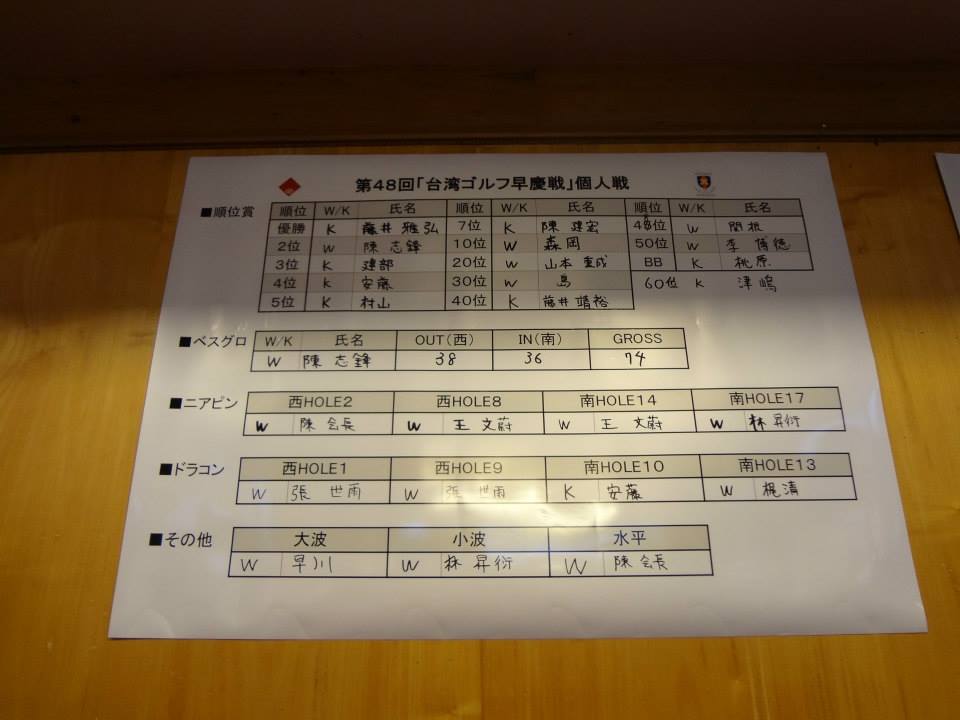 第48回「台湾ゴルフ早慶戦」個人戦
■順位賞 順位 W/K 氏名 順位 W/K 氏名 順位 W/K 氏名
優勝 K 藤井 雅弘 7位 K 陳 建宏 48位 W 関根
2位 W 陳 志鋒 10位 W 森岡 50位 W 李 博徳
3位 K 建部 20位 W 山本 重成 BB K 桃原
4位 K 安藤 30位 W 島 60位 K 津嶋
5位 K 村山 40位 K 藤井 靖裕
■ベスグロ W/K 氏名 OUT(西) IN(南) GROSS
W 陳 志鋒 38 36 74
■ニアピン 西HOLE2 西HOLE8 南HOLE14 南HOLE17
W 陳 会長 W 王 文蔚 W 王 文蔚 W 林 昇衍
■ドラコン 西HOLE1 西HOLE9 南HOLE10 南HOLE13
W 張 世雨 W 張 世雨 K 安藤 W 梶清
■その他 大波 小波 水平
W 早川 W 林 昇衍 W 陳 会長